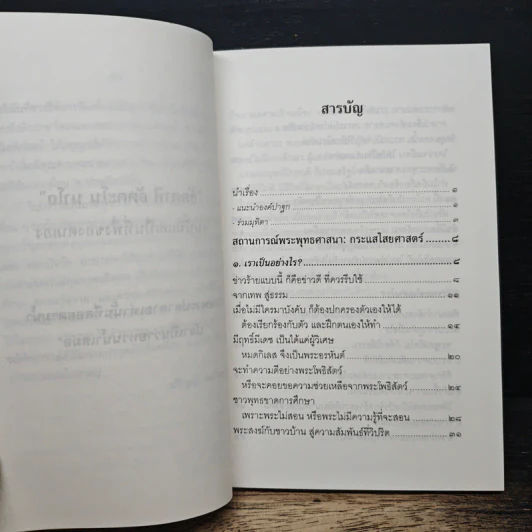 สารบัญ
นำเรื่อง ๑
- แนะนำองค์ปาฐก ๑
- ร่วมมุทิตา ๖
สถานการณ์พระพุทธศาสนา: กระแสไสยศาสตร์ ๘
๑. เราเป็นอย่างไร? ๘
ข่าวร้ายแบบนี้ ก็คือข่าวดี ที่ควรรีบใช้ ๘
จากเทพ สู่ธรรม ๑๑
เมื่อไม่มีใครมาบังคับ ก็ต้องปกครองตัวเองให้ได้
ต้องเรียกร้องกับตัว และฝึกตนเองให้ทำ ๑๔
มีฤทธิ์มีเดช เป็นได้แค่ผู้วิเศษ
หมดกิเลส จึงเป็นพระอรหันต์ ๒๐
จะทำความดีอย่างพระโพธิสัตว์
หรือจะคอยขอความช่วยเหลือจากพระโพธิสัตว์ ๒๔
ชาวพุทธขาดการศึกษา
เพราะพระไม่สอน หรือพระไม่มีความรู้ที่จะสอน ๒๘
พระสงฆ์กับชาวบ้าน สู่ความสัมพันธ์ที่วิปริต ๓๑